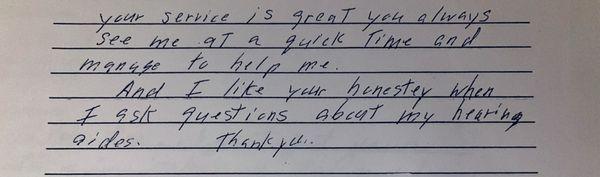 your service is great you always
see me at a quick time and
manage to help me.
And I like your honestey when
I ask questions about my hearing
aides. Thankyou.